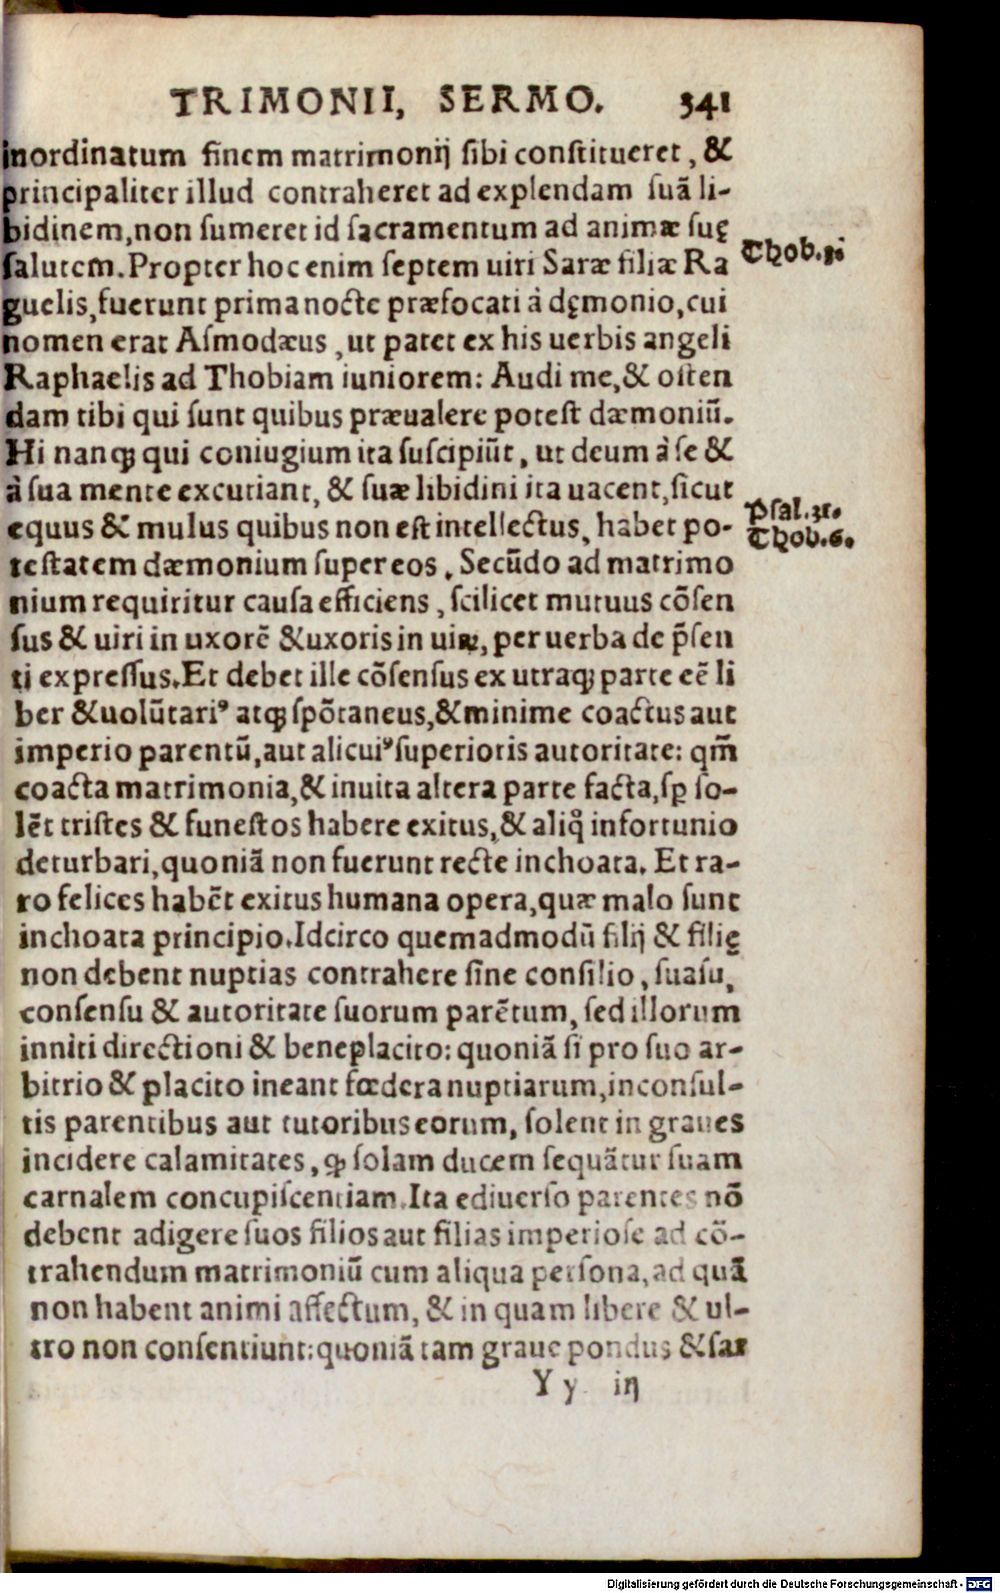 TRIMONII, SERMO. 341
inordinatum finem matrimonij sibi constitueret, &
principaliter illud contraheret ad explendam suā li-
bidinem, non sumeret id sacramentum ad animæ suę
salutem. Propter hoc enim septem uiri Saræ filiæ Ra
Thob. 3.
guelis, fuerunt prima nocte præfocati à dęmonio, cui
nomen erat Asmodæus, ut patet ex his uerbis angeli
Raphaelis ad Thobiam iuniorem: Audi me, & osten
dam tibi qui sunt quibus præualere potest dæmoniū.
Hi nanq; qui coniugium ita suscipiūt, ut deum à se &
à sua mente excutiant, & suæ libidini ita uacent, sicut
equus & mulus quibus non est intellectus, habet po-
Psal. 31.
Thob. 6.
testatem dæmonium super eos. Secūdo ad matrimo
nium requiritur causa efficiens, scilicet mutuus cōsen
sus & uiri in uxorē & uxoris in uirū, per uerba de p̄sen
ti expressus. Et debet ille cōsensus ex utraq; parte eē li
ber & uolūtariꝰ atq; spōtaneus, & minime coactus aut
imperio parentū, aut alicuiꝰ superioris autoritate: qm̄
coacta matrimonia, & inuita altera parte facta, sꝑ so-
lēt tristes & funestos habere exitus, & aliq̊ infortunio
deturbari, quoniā non fuerunt recte inchoata. Et ra-
ro felices habēt exitus humana opera, quæ malo sunt
inchoata principio. Idcirco quemadmodū filij & filię
non debent nuptias contrahere sine consilio, suasu,
consensu & autoritate suorum parētum, sed illorum
inniti directioni & beneplacito: quoniā si pro suo ar-
bitrio & placito ineant fœdera nuptiarum, inconsul-
tis parentibus aut tutoribus eorum, solent in graues
incidere calamitates, ꝙ solam ducem sequātur suam
carnalem concupiscentiam. Ita ediuerso parentes nō
debent adigere suos filios aut filias imperiose ad cō-
trahendum matrimoniū cum aliqua persona, ad quā
non habent animi affectum, & in quam libere & ul-
tro non consentiunt: quoniā tam graue pondus & sar
Y y iij
Digitalisierung gefördert durch die Deutsche Forschungsgemeinschaft - DFG